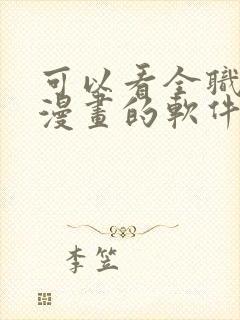 可以看全職
漫畫的軟件
李笠